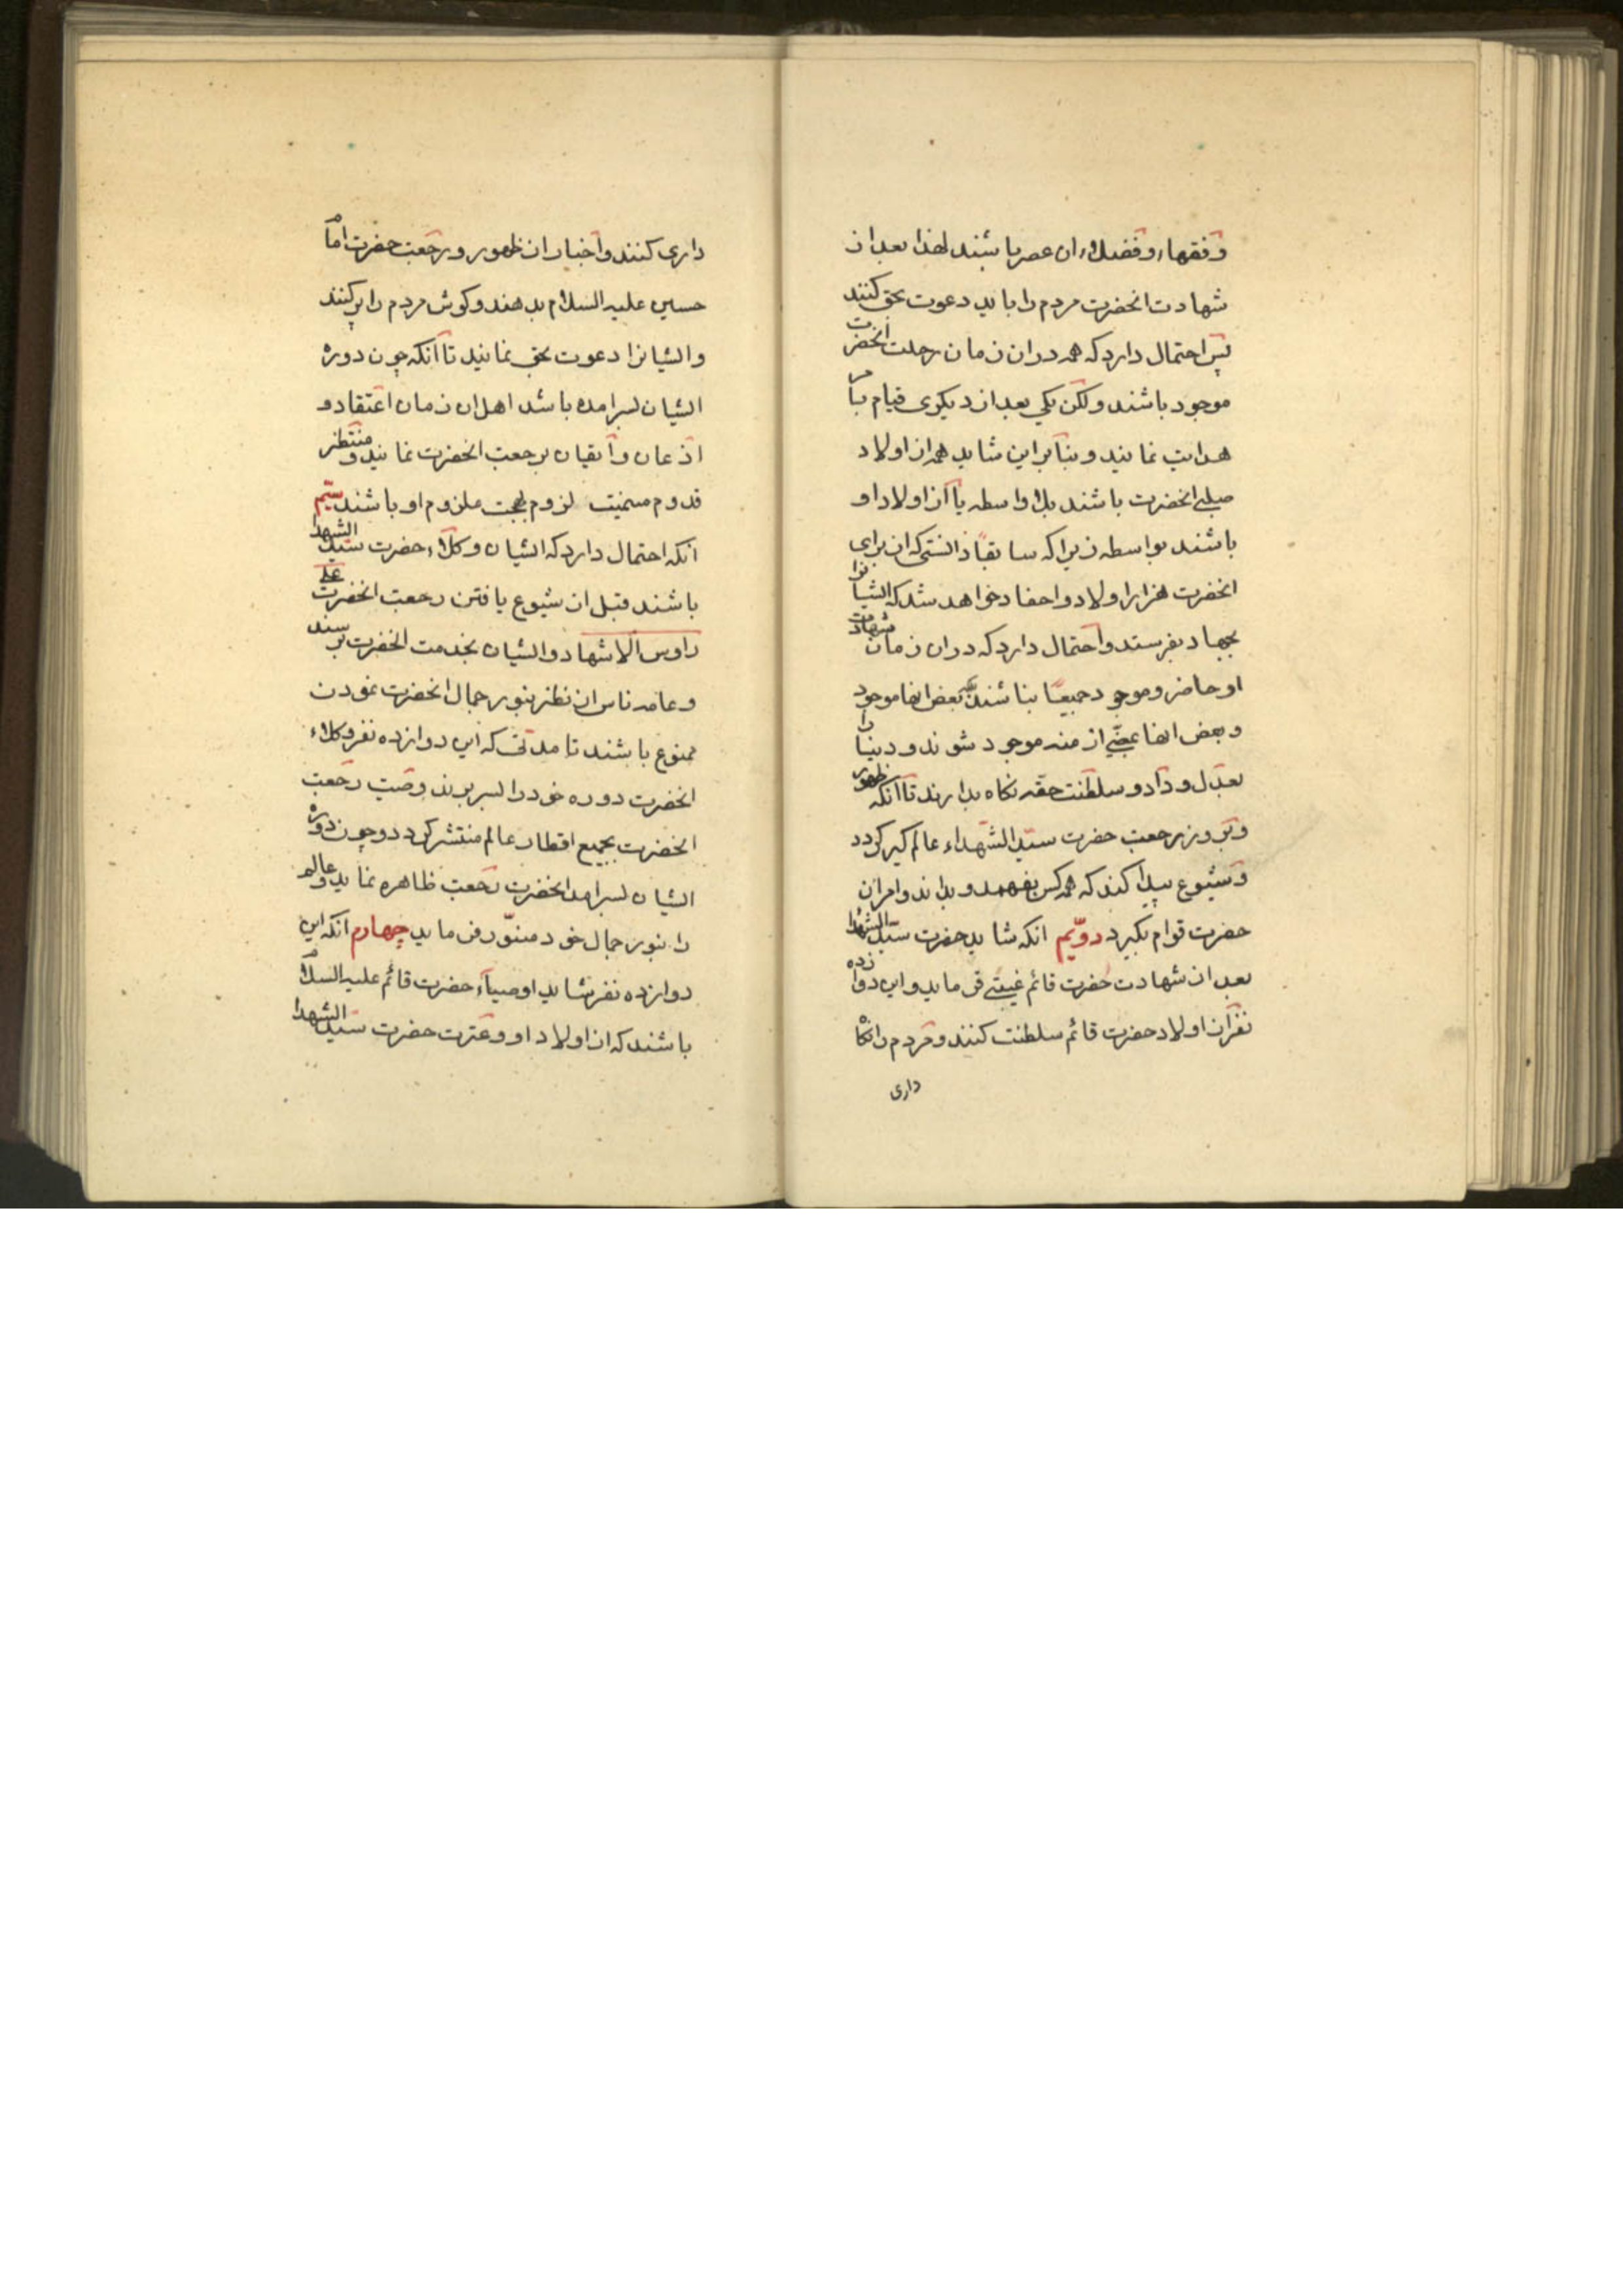 وفقهاء وفضلاء ان عصر باشند لهذا بعد از
شهادت انحضرت مردم را باید دعوت بحق کنند
پس احتمال دارد که همه در ان زمان رحلت انحضرت
موجود باشند ولکن یکی بعد از دیکری قیام بامر
هدایت نمایند و بنابر این شاید همه از اولاد
صلبی انحضرت باشند بلا واسطه یا از اولاد او
باشند بواسطه زیرا که سابقاً دانستی که از برای
انحضرت هزار اولاد و احفاد خواهد شد که ایشانرا
بجهاد بفرستد و احتمال دارد که در ان زمان شهادت
او حاضر و موجود جمیعًا نباشند بعض انها موجود
و بعض انها من بعد موجود شوند و دنیا را
بعدل و داد و سلطنت حقه نکاه بدارند تا آنکه ظهور
و بروز رجعت حضرت سید الشهداء عالم کیر کردد
و شیوع پیدا کند که همه کس بفهمد و بداند و امر ان
حضرت قوام بکیرد دویّم انکه شاید حضرت سید الشهدا
بعد از شهادت حضرت قائم غیبتی فرماید و این دوازده
نفر از اولاد حضرت قائم سلطنت کنند و مردم را نکاه
داری
داری کنند و اخبار از ظهور و رجعت حضرت امام
حسین علیه السلام بدهند و کوش مردم را پر کنند
و ایشانرا دعوت بحق نمایند تا آنکه چون دوره
ایشان بسر امده باشد اهل ان زمان اعتقاد و
اذعان و ایقان برجعت انحضرت نمایند و منتظر
قدوم میمنت لزوم بهجت ملزوم او باشند سیّم
انکه احتمال دارد که ایشان وکلاء حضرت سید الشهدا
باشند قبل از شیوع یافتن رجعت انحضرت علی
رؤس الاشهاد و ایشان بخدمت انحضرت برسند
و عامه ناس از نظر بنور جمال انحضرت نمودن
ممنوع باشند تا مدتی که این دوازده نفر وکلاء
انحضرت دوره خود را بسر برند و صیت رجعت
انحضرت بجمیع اقطار عالم منتشر کردد و چون دوره
ایشان بسر امد انحضرت رجعت ظاهره نماید و عالم
را بنور جمال خود منوّر فرماید چهارم انکه این
دوازده نفر شاید اوصیاء حضرت قائم علیه السلام
باشند که از اولاد او و عترت حضرت سید الشهدا